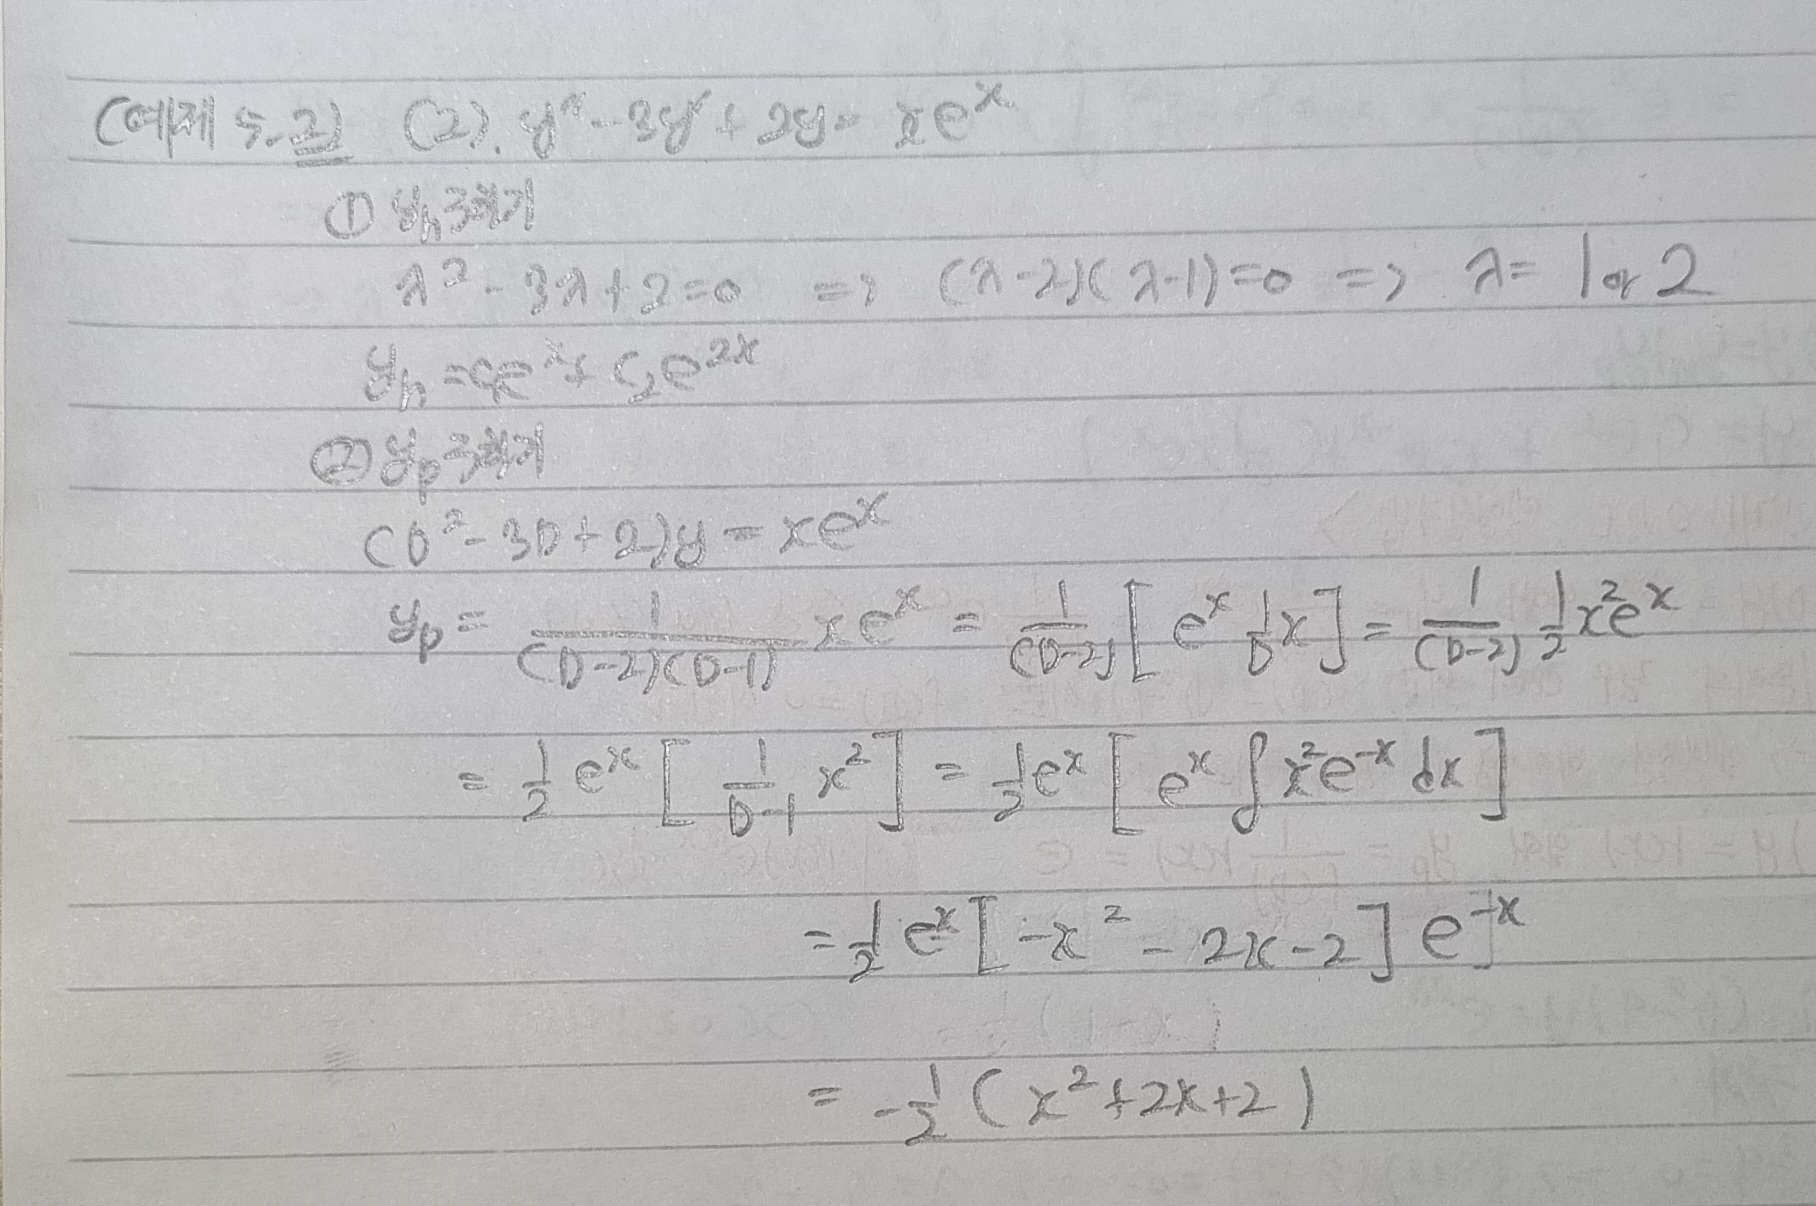 (예제 5-2) (2). y'' - 3y' + 2y = xe^x
① y_h 구하기
λ² - 3λ + 2 = 0 => (λ-2)(λ-1)=0 => λ = 1 or 2
y_h = c₁e^x + c₂e^{2x}
② y_p 구하기
(D² - 3D + 2)y = xe^x
y_p = \frac{1}{(D-2)(D-1)} xe^x = \frac{1}{(D-2)} [ e^x \frac{1}{D} x ] = \frac{1}{(D-2)} \frac{1}{2} x²e^x
= \frac{1}{2} e^x [ \frac{1}{D-1} x² ] = \frac{1}{2} e^x [ e^x ∫ x²e^{-x} dx ]
= \frac{1}{2} e^x [ -x² - 2x - 2 ] e^{-x}
= -\frac{1}{2} ( x² + 2x + 2 )